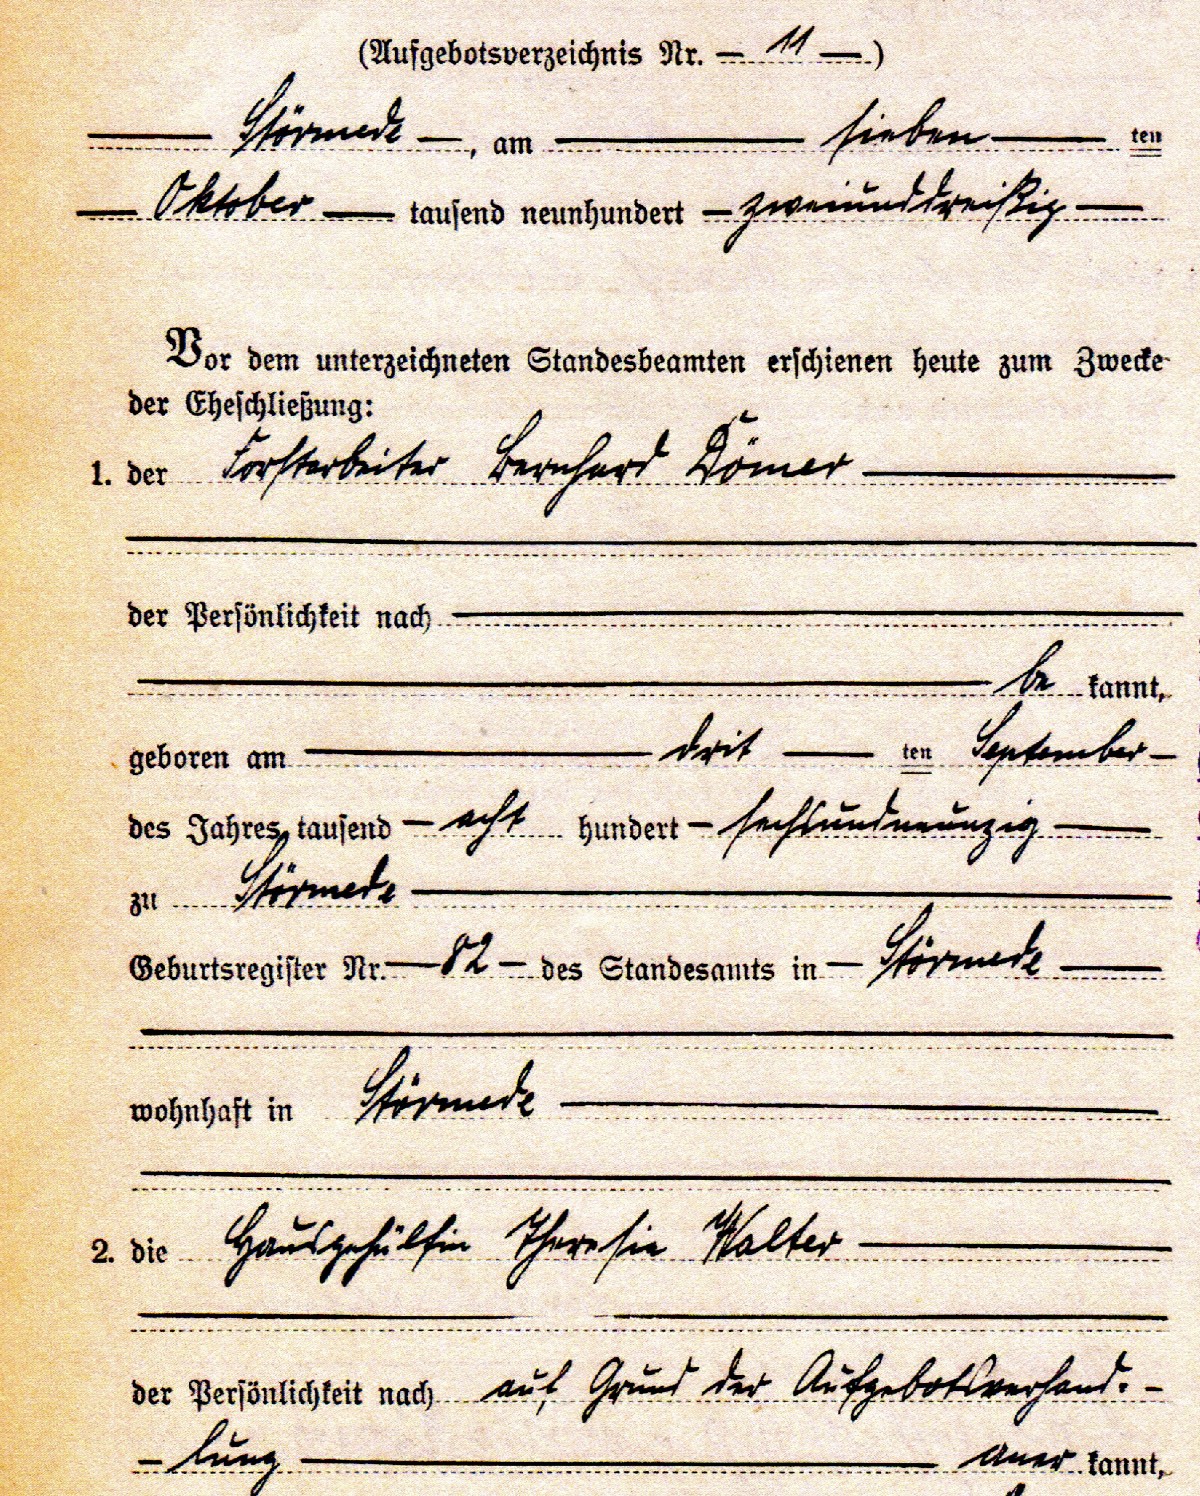 (Aufgebotsverzeichnis Nr. — 11 —)
Störmede —, am — sieben — ten
— Oktober — tausend neunhundert — zweiunddreißig —
Vor dem unterzeichneten Standesbeamten erschienen heute zum Zwecke
der Eheschließung:
1. der Forstarbeiter Bernhard Dömer —
der Persönlichkeit nach —
— be kannt,
geboren am — drit — ten September —
des Jahres tausend — acht hundert — sechsundneunzig —
zu Störmede —
Geburtsregister Nr. — 82 — des Standesamts in — Störmede —
wohnhaft in Störmede —
2. die Hausgehülfin Theresia Walter —
der Persönlichkeit nach auf Grund der Aufgebotsverhand: -
- lung — aner kannt,